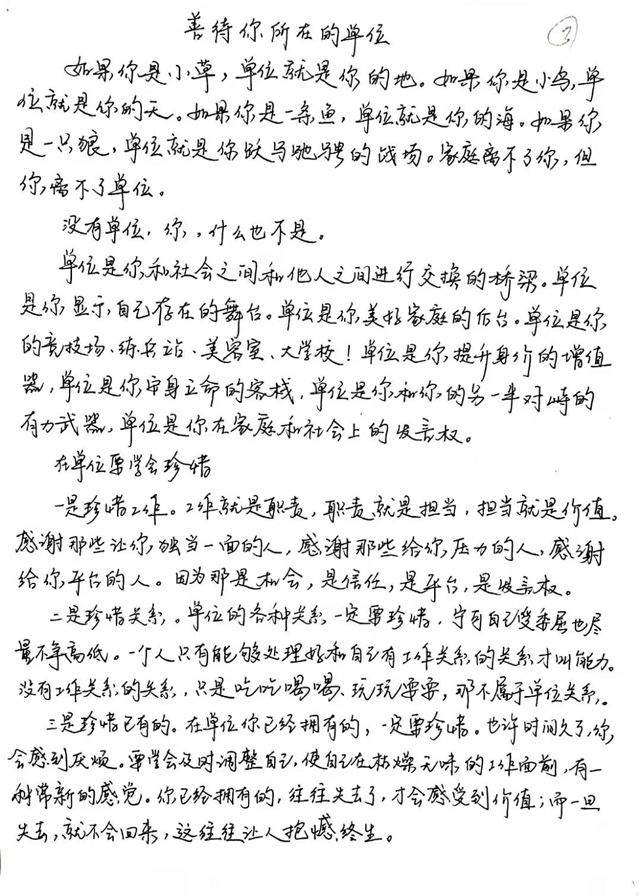 善待你所在的单位
3
如果你是小草，单位就是你的地。如果你是小鸟，单
位就是你的天。如果你是一条鱼，单位就是你的海。如果你
是一只狼，单位就是你跃马驰骋的战场。家庭离不了你，但
你离不了单位。
没有单位，你，什么也不是。
单位是你和社会之间和他人之间进行交换的桥梁。单位
是你显示自己存在的舞台。单位是你美好家庭的后台。单位是你
的竞技场、练兵站、美容室、大学校！单位是你提升身价的增值
器，单位是你安身立命的客栈，单位是你和你的另一半对峙的
有力武器，单位是你在家庭和社会上的发言权。
在单位要学会珍惜
一是珍惜工作。工作就是职责，职责就是担当，担当就是价值。
感谢那些让你独当一面的人，感谢那些给你压力的人，感谢
给你平台的人。因为那是机会，是信任，是平台，是发言权。
二是珍惜关系。单位的各种关系一定要珍惜，宁可自己受委屈也尽
量不争高低。一个人只有能够处理好和自己有工作关系的关系才叫能力。
没有工作关系的关系，只是吃吃喝喝、玩玩耍耍，那不属于单位关系。
三是珍惜已有的。在单位你已经拥有的，一定要珍惜。也许时间久了，你
会感到厌烦。要学会及时调整自己，使自己在枯燥无味的工作面前，有一
种常新的感觉。你已经拥有的，往往失去了，才会感受到价值；而一旦
失去，就不会回来，这往往让人抱憾终生。